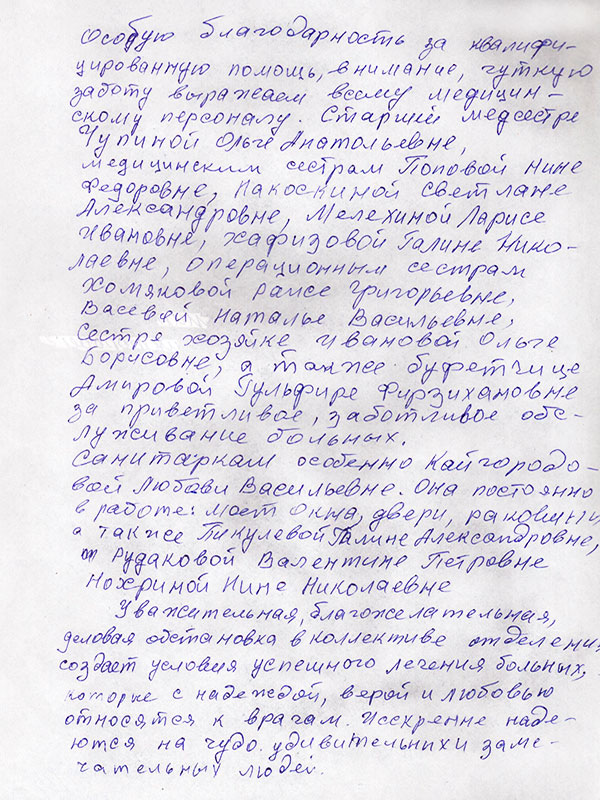 особую благодарность за квалифи-
цированную помощь, внимание, чуткую
заботу выражаем всему медицин-
скому персоналу. Старшей медсестре
Чупиной Ольге Анатольевне,
медицинским сестрам Поповой Нине
Федоровне, Накоскиной Светлане
Александровне, Мелехиной Ларисе
Ивановне, Хафизовой Галине Нико-
лаевне, операционным сестрам
Хомяковой Раисе Григорьевне,
Васевой Наталье Васильевне,
Сестре хозяйке Ивановой Ольге
Борисовне, а также буфетчице
Амировой Гульфире Фирзихановне
за приветливое, заботливое обс-
луживание больных.
Санитаркам особенно Кайгородо-
вой Любави Васильевне. Она постоянно
в работе: моет окна, двери, раковины
а также Пикулевой Галине Александровне,
Рудаковой Валентине Петровне
Нохриной Нине Николаевне
Уважительная, благожелательная,
деловая обстановка в коллективе отделения
создает условия успешного лечения больных,
которые с надеждой, верой и любовью
относятся к врачам. Исскренне наде-
ются на чудо удивительных и заме-
чательных людей.